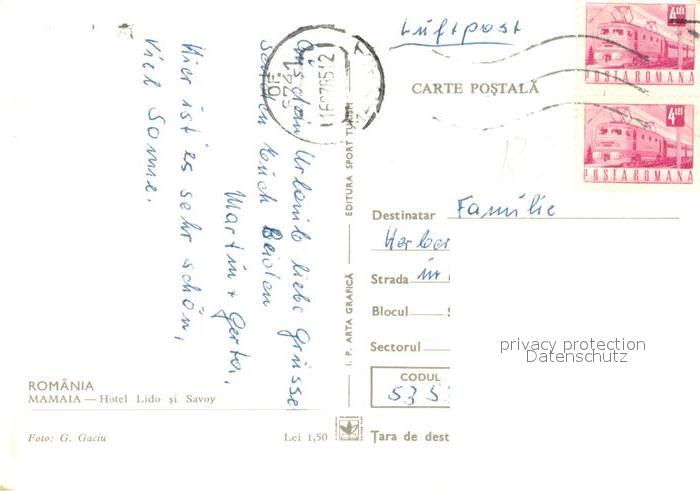 Luftpost
4 LEI
POSTA ROMANA
4 LEI
POSTA ROMANA
CARTE POȘTALĂ
Aus dem Urlaub liebe Grüsse
senden Euch Beiden
Martin + Gerta,
Hier ist es sehr schön,
viel Sonne.
EDITURA SPORT TURISM
I. P. ARTA GRAFICĂ
Destinatar Familie
Strada
Blocul
Sectorul
CODUL
535
Țara de dest
privacy protection
Datenschutz
ROMÂNIA
MAMAIA — Hotel Lido și Savoy
Foto: G. Gaciu
Lei 1,50